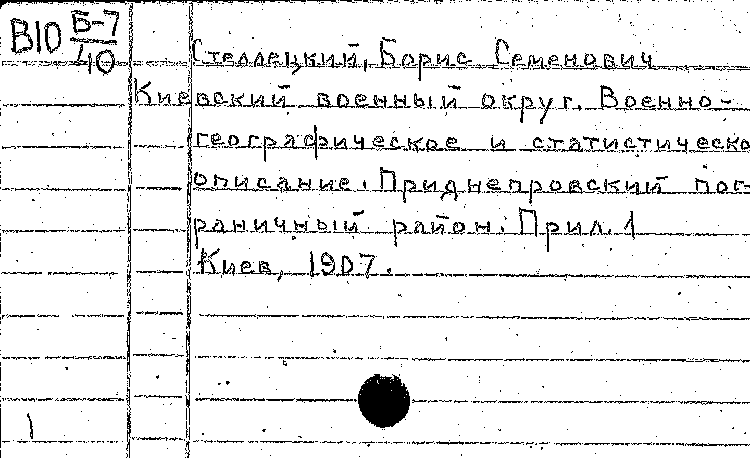 В10 Б-7/40
Стеллецкий, Борис Семенович
Киевский военный округ. Военно-
географическое и статистическо
описание. Приднепровский пог-
раничный район. Прил. 1
Киев, 1907.
1